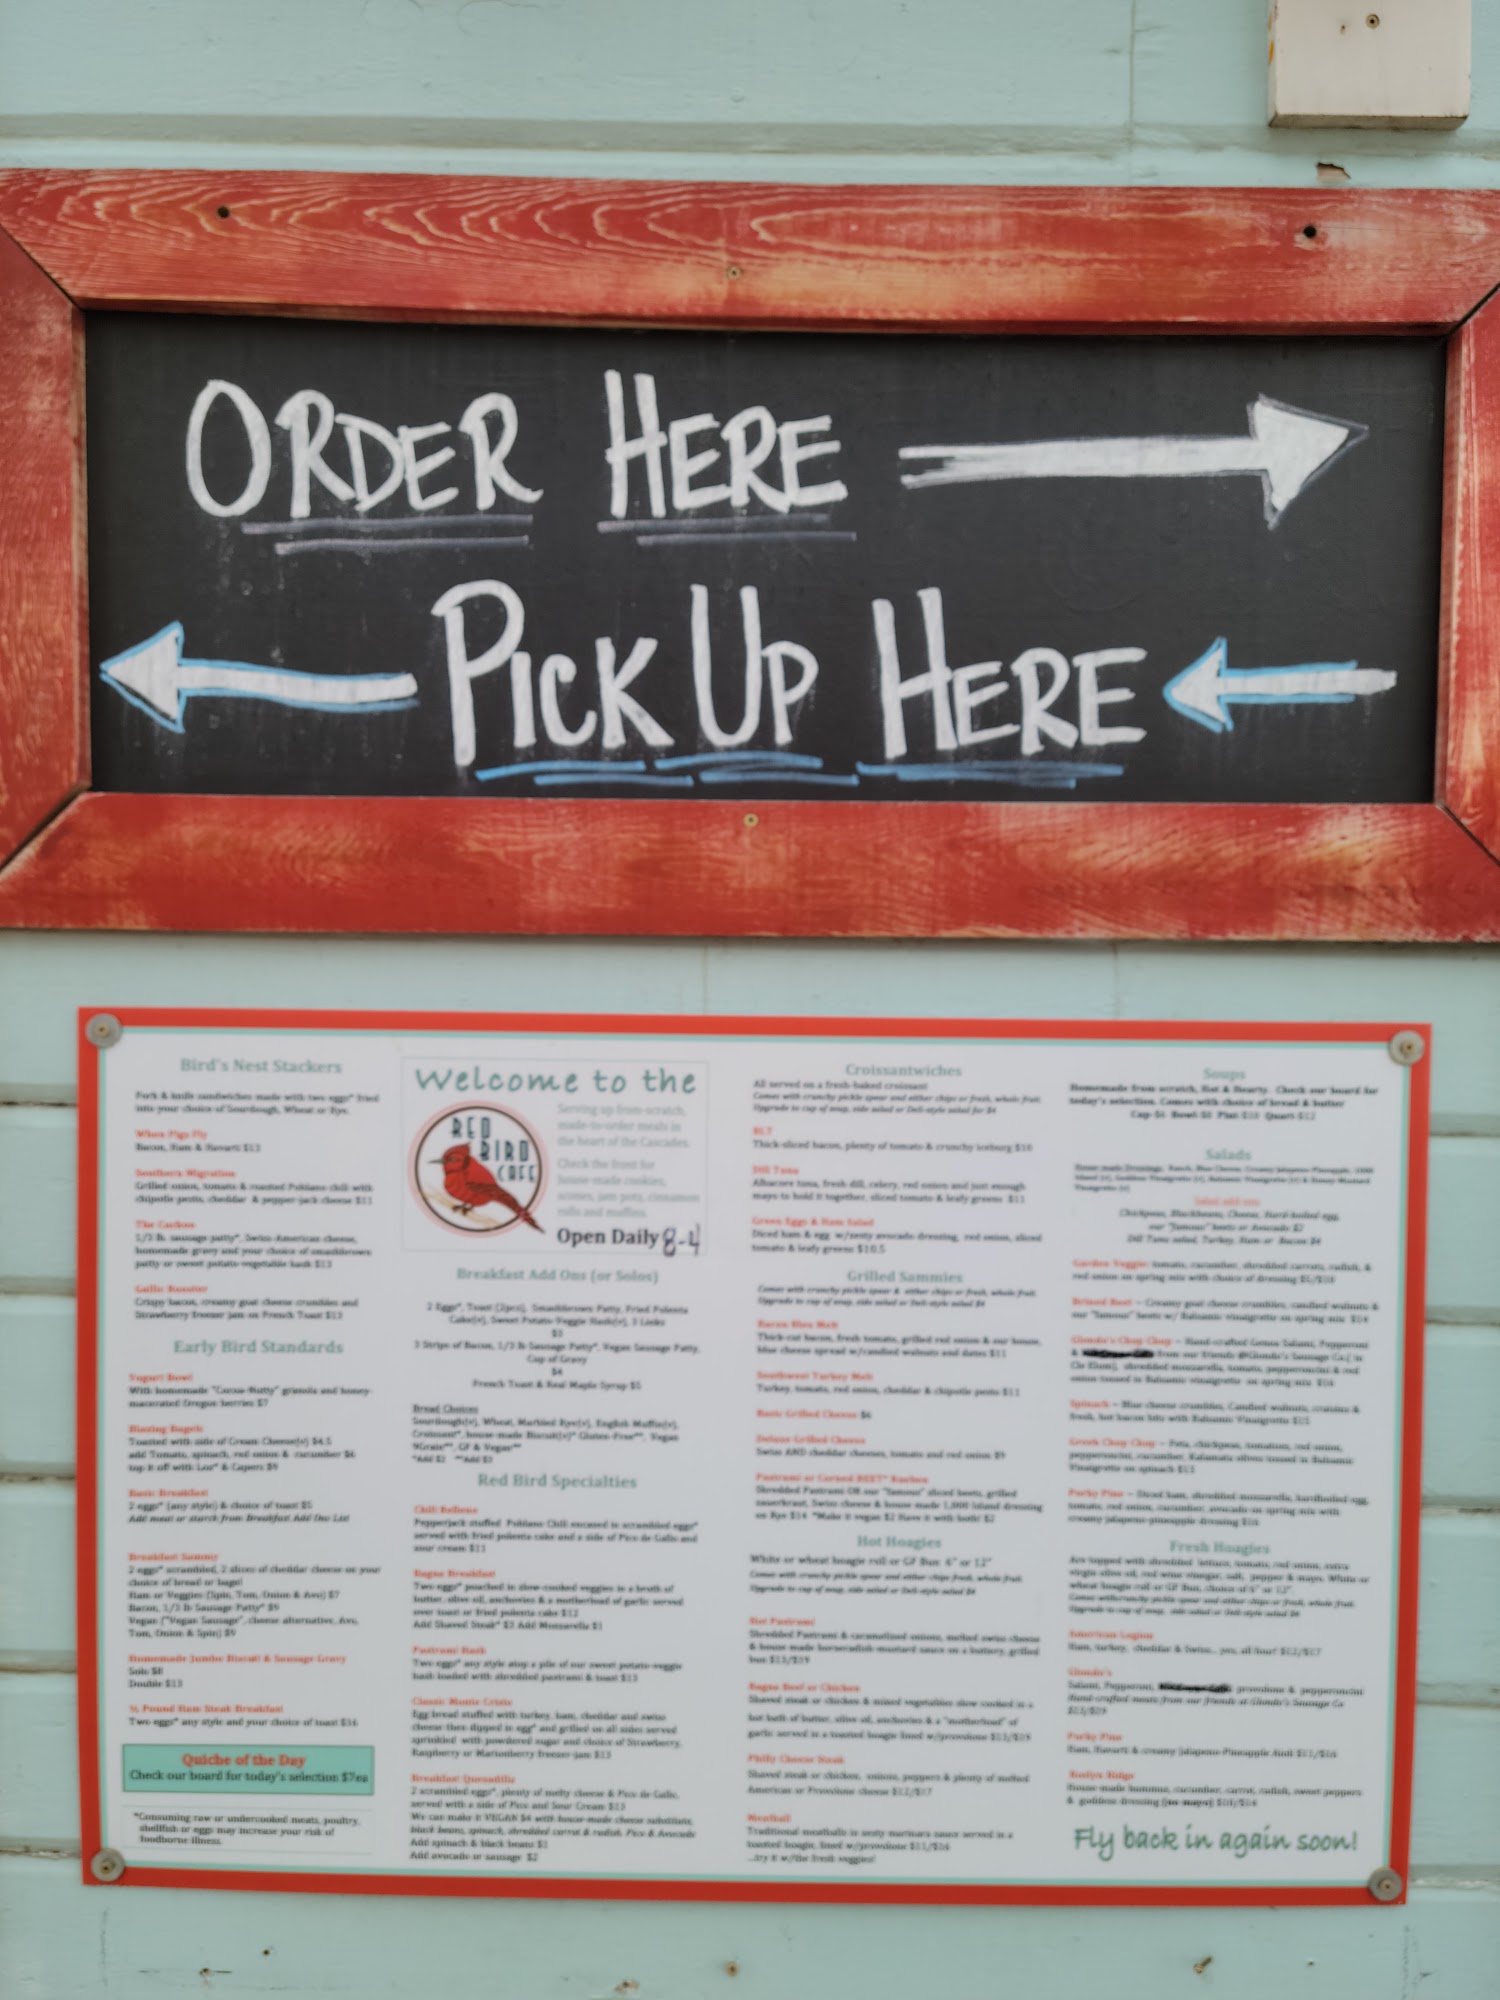 ORDER HERE
PICK UP HERE
Bird's Nest Stackers
Fork & knife sandwiches made with two eggs* fried
into your choice of Sourdough, Wheat or Rye.
When Pigs Fly
Bacon, Ham & Havarti $13
Southern Migration
Grilled onion, tomato & roasted Poblano chili with
chipotle pesto, cheddar & pepper-jack cheese $11
The Cuckoo
1/3 lb. sausage patty*, Swiss American cheese,
homemade gravy and your choice of smashbrown
patty or sweet potato-vegetable hash $13
Gallic Rooster
Crispy bacon, creamy goat cheese crumbles and
Strawberry freezer jam on French Toast $12
Early Bird Standards
Yogurt Bowl
With homemade "Cocoa-Nutty" granola and honey-
macerated Oregon berries $7
Blazing Bagels
Toasted with side of Cream Cheese(v) $4.5
add Tomato, spinach, red onion & cucumber $6
top it off with Lox* & Capers $9
Basic Breakfast
2 eggs* (any style) & choice of toast $5
Add meat or starch from Breakfast Add Ons List
Breakfast Sammy
2 eggs* scrambled, 2 slices of cheddar cheese on your
choice of bread or bagel
Ham or Veggies (Spin, Tom, Onion & Avo) $7
Bacon, 1/3 lb Sausage Patty* $9
Vegan ("Vegan Sausage", cheese alternative, Avo,
Tom, Onion & Spin) $9
Homemade Jumbo Biscuit & Sausage Gravy
Solo $8
Double $13
½ Pound Ham Steak Breakfast
Two eggs* any style and your choice of toast $16
Quiche of the Day
Check our board for today's selection $7ea
*Consuming raw or undercooked meats, poultry,
shellfish or eggs may increase your risk of
foodborne illness.
Welcome to the
RED BIRD CAFE
Serving up from-scratch,
made-to-order meals in
the heart of the Cascades.
Check the front for
house-made cookies,
scones, jam pots, cinnamon
rolls and muffins.
Open Daily 8-4
Breakfast Add Ons (or Solos)
2 Eggs*, Toast (2pcs), Smashbrown Patty, Fried Polenta
Cake(v), Sweet Potato-Veggie Hash(v), 3 Links
$3
3 Strips of Bacon, 1/3 lb Sausage Patty*, Vegan Sausage Patty,
Cup of Gravy
$4
French Toast & Real Maple Syrup $5
Bread Choices
Sourdough(v), Wheat, Marbled Rye(v), English Muffin(v),
Croissant*, house-made Biscuit(v)* Gluten-Free**, Vegan
9Grain**, GF & Vegan**
*Add $2 **Add $3
Red Bird Specialties
Chili Relleno
Pepperjack stuffed Poblano Chili encased in scrambled eggs*
served with fried polenta cake and a side of Pico de Gallo and
sour cream $11
Bagna Breakfast
Two eggs* poached in slow-cooked veggies in a broth of
butter, olive oil, anchovies & a motherload of garlic served
over toast or fried polenta cake $12
Add Shaved Steak* $3 Add Mozzarella $1
Pastrami Hash
Two eggs* any style atop a pile of our sweet potato-veggie
hash loaded with shredded pastrami & toast $13
Classic Monte Cristo
Egg bread stuffed with turkey, ham, cheddar and swiss
cheese then dipped in egg* and grilled on all sides served
sprinkled with powdered sugar and choice of Strawberry,
Raspberry or Marionberry freezer-jam $13
Breakfast Quesadilla
2 scrambled eggs*, plenty of melty cheese & Pico de Gallo,
served with a side of Pico and Sour Cream $13
We can make it VEGAN $4 with house-made cheese substitute,
black beans, spinach, shredded carrot & radish, Pico & Avocado
Add spinach & black beans $1
Add avocado or sausage $2
Croissantwiches
All served on a fresh-baked croissant
Comes with crunchy pickle spear and either chips or fresh, whole fruit.
Upgrade to cup of soup, side salad or Deli-style salad for $4
BLT
Thick-sliced bacon, plenty of tomato & crunchy iceburg $10
Dill Tuna
Albacore tuna, fresh dill, celery, red onion and just enough
mayo to hold it together, sliced tomato & leafy greens $11
Green Eggs & Ham Salad
Diced ham & egg w/zesty avocado dressing, red onion, sliced
tomato & leafy greens $10.5
Grilled Sammies
Comes with crunchy pickle spear & either chips or fresh, whole fruit.
Upgrade to cup of soup, side salad or Deli-style salad $4
Bacon Bleu Melt
Thick-cut bacon, fresh tomato, grilled red onion & our house,
blue cheese spread w/candied walnuts and dates $11
Southwest Turkey Melt
Turkey, tomato, red onion, cheddar & chipotle pesto $11
Basic Grilled Cheese $6
Deluxe Grilled Cheese
Swiss AND cheddar cheeses, tomato and red onion $9
Pastrami or Corned BEET* Reuben
Shredded Pastrami OR our "famous" sliced beets, grilled
sauerkraut, Swiss cheese & house made 1,000 Island dressing
on Rye $14 *Make it vegan $2 Have it with both! $2
Hot Hoagies
White or wheat hoagie roll or GF Bun: 6" or 12"
Comes with crunchy pickle spear and either chips or fresh, whole fruit.
Upgrade to cup of soup, side salad or Deli-style salad $4
Hot Pastrami
Shredded Pastrami & caramelized onions, melted swiss cheese
& house made horseradish-mustard sauce on a buttery, grilled
bun $13/$19
Bagna Beef or Chicken
Shaved steak or chicken & mixed vegetables slow cooked in a
hot bath of butter, olive oil, anchovies & a "motherload" of
garlic served in a toasted hoagie lined w/provolone $13/$19
Philly Cheese Steak
Shaved steak or chicken, onions, peppers & plenty of melted
American or Provolone cheese $12/$17
Meatball
Traditional meatballs in zesty marinara sauce served in a
toasted hoagie, lined w/provolone $11/$16
...try it w/the fresh veggies!
Soups
Homemade from scratch, Hot & Hearty. Check our board for
today's selection. Comes with choice of bread & butter
Cup $6 Bowl $8 Pint $10 Quart $12
Salads
Salad add-ons
Chickpeas, Blackbeans, Cheese, Hard-boiled egg,
our "famous" beets or Avocado $2
Dill Tuna salad, Turkey, Ham or Bacon $4
Garden Veggie: tomato, cucumber, shredded carrots, radish, &
red onion on spring mix with choice of dressing
Brined Beet – Creamy goat cheese crumbles, candied walnuts &
our "famous" beets w/ Balsamic vinaigrette on spring mix $14
Glondo's Chop Chop – Hand-crafted Genoa Salami, Pepperoni
& from our friends @Glondo's Sausage Co.( in
Cle Elum), shredded mozzarella, tomato, pepperoncini & red
onion tossed in Balsamic vinaigrette on spring mix $16
Spinach – Blue cheese crumbles, Candied walnuts, craisins &
fresh, hot bacon bits with Balsamic Vinaigrette
Greek Chop Chop – Feta, chickpeas, tomatoes, red onion,
pepperoncini, cucumber, Kalamata olives tossed in Balsamic
Vinaigrette on spinach
Porky Pine – Diced ham, shredded mozzarella, hardboiled egg,
tomato, red onion, cucumber, avocado on spring mix with
creamy jalapeno-pineapple dressing
Fresh Hoagies
Are topped with shredded lettuce, tomato, red onion, extra
virgin olive oil, red wine vinegar, salt, pepper & mayo. White or
wheat hoagie roll or GF Bun, choice of 6" or 12".
Comes with crunchy pickle spear and either chips or fresh, whole fruit.
Upgrade to cup of soup, side salad or Deli-style salad $4
American Legion
Ham, turkey, cheddar & Swiss... yes, all four! $12/$17
Glondo's
Salami, Pepperoni, provolone & pepperoncini
Hand-crafted meats from our friends at Glondo's Sausage Co
$13/$19
Porky Pine
Ham, Havarti & creamy Jalapeno-Pineapple Aioli $11/$16
Roslyn Ridge
House-made hummus, cucumber, carrot, radish, sweet peppers
& goddess dressing (no mayo) $10/$14
Fly back in again soon!